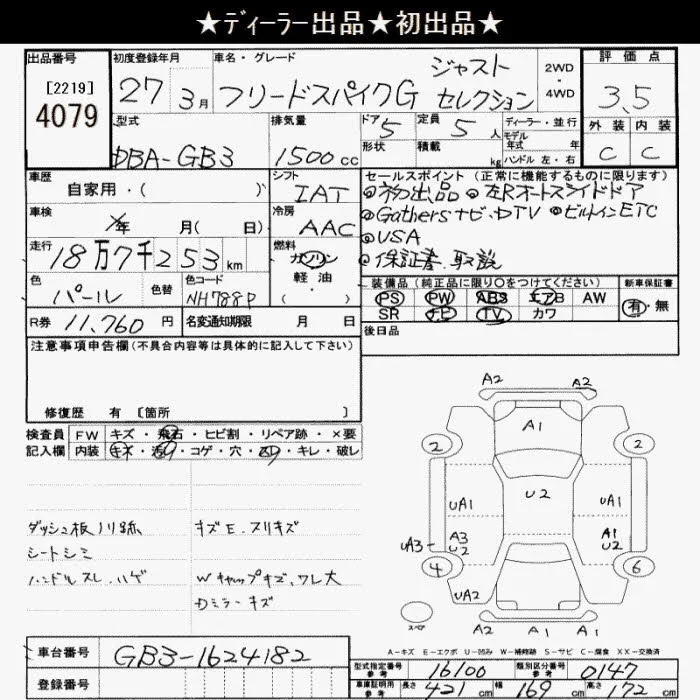 ★ディーラー出品★初出品★
出品番号
[2219]
4079
初度登録年月
27年3月
車名・グレード
フリードスパイクG ジャスト セレクション
2WD・4WD
評価点
3.5
外装 内装
C C
型式
DBA-GB3
排気量
1500cc
ドア 5
形状
定員 5人
積載 kg
ディーラー・並行
モデル年式 年
ハンドル 左・右
車歴
自家用・( )
シフト
IAT
車検
年 月( 日)
冷房
AAC
走行
18万7千253km
燃料
ガソリン
軽・油
( )
色
パール
色替
色コード
NH788P
R券 11,760円
名変通知期限 月 日
セールスポイント(正常に機能するものに限ります)
◎初出品 ◎左Rオートスライドドア
◎Gathersナビ・DTV ◎ビルトインETC
◎USA
◎保証書、取説
装備品(純正品に限り○をつけてください)
PS PW ABS エアB AW
SR ナビ TV カワ
新車保証書
有・無
後日品
注意事項申告欄(不具合内容等は具体的に記入して下さい)
修復歴 有 [箇所 ]
検査員記入欄
FW キズ・飛石・ヒビ割・リペア跡・×要
内装 キズ・汚れ・コゲ・穴・凹・キレ・破レ
ダッシュ板ノリ跡
シートシミ
ハンドルスレ、ハゲ
キズE、スリキズ
WキャップキズワレX大
Dミラーキズ
A2 A2
A1
2 2
U2
UA1 UA1
A3 U2
A1 U2
UA3
4 6
UA2
スペア
A2 A1 A1
A-キズ E-エクボ U-凹み W-補修跡 S-サビ C-腐食 XX-交換済
車台番号 GB3-1624182
登録番号
型式指定番号 参考 16100
類別区分番号 参考 0147
車庫証明用 参考 長さ 421cm 幅 169cm 高さ 172cm